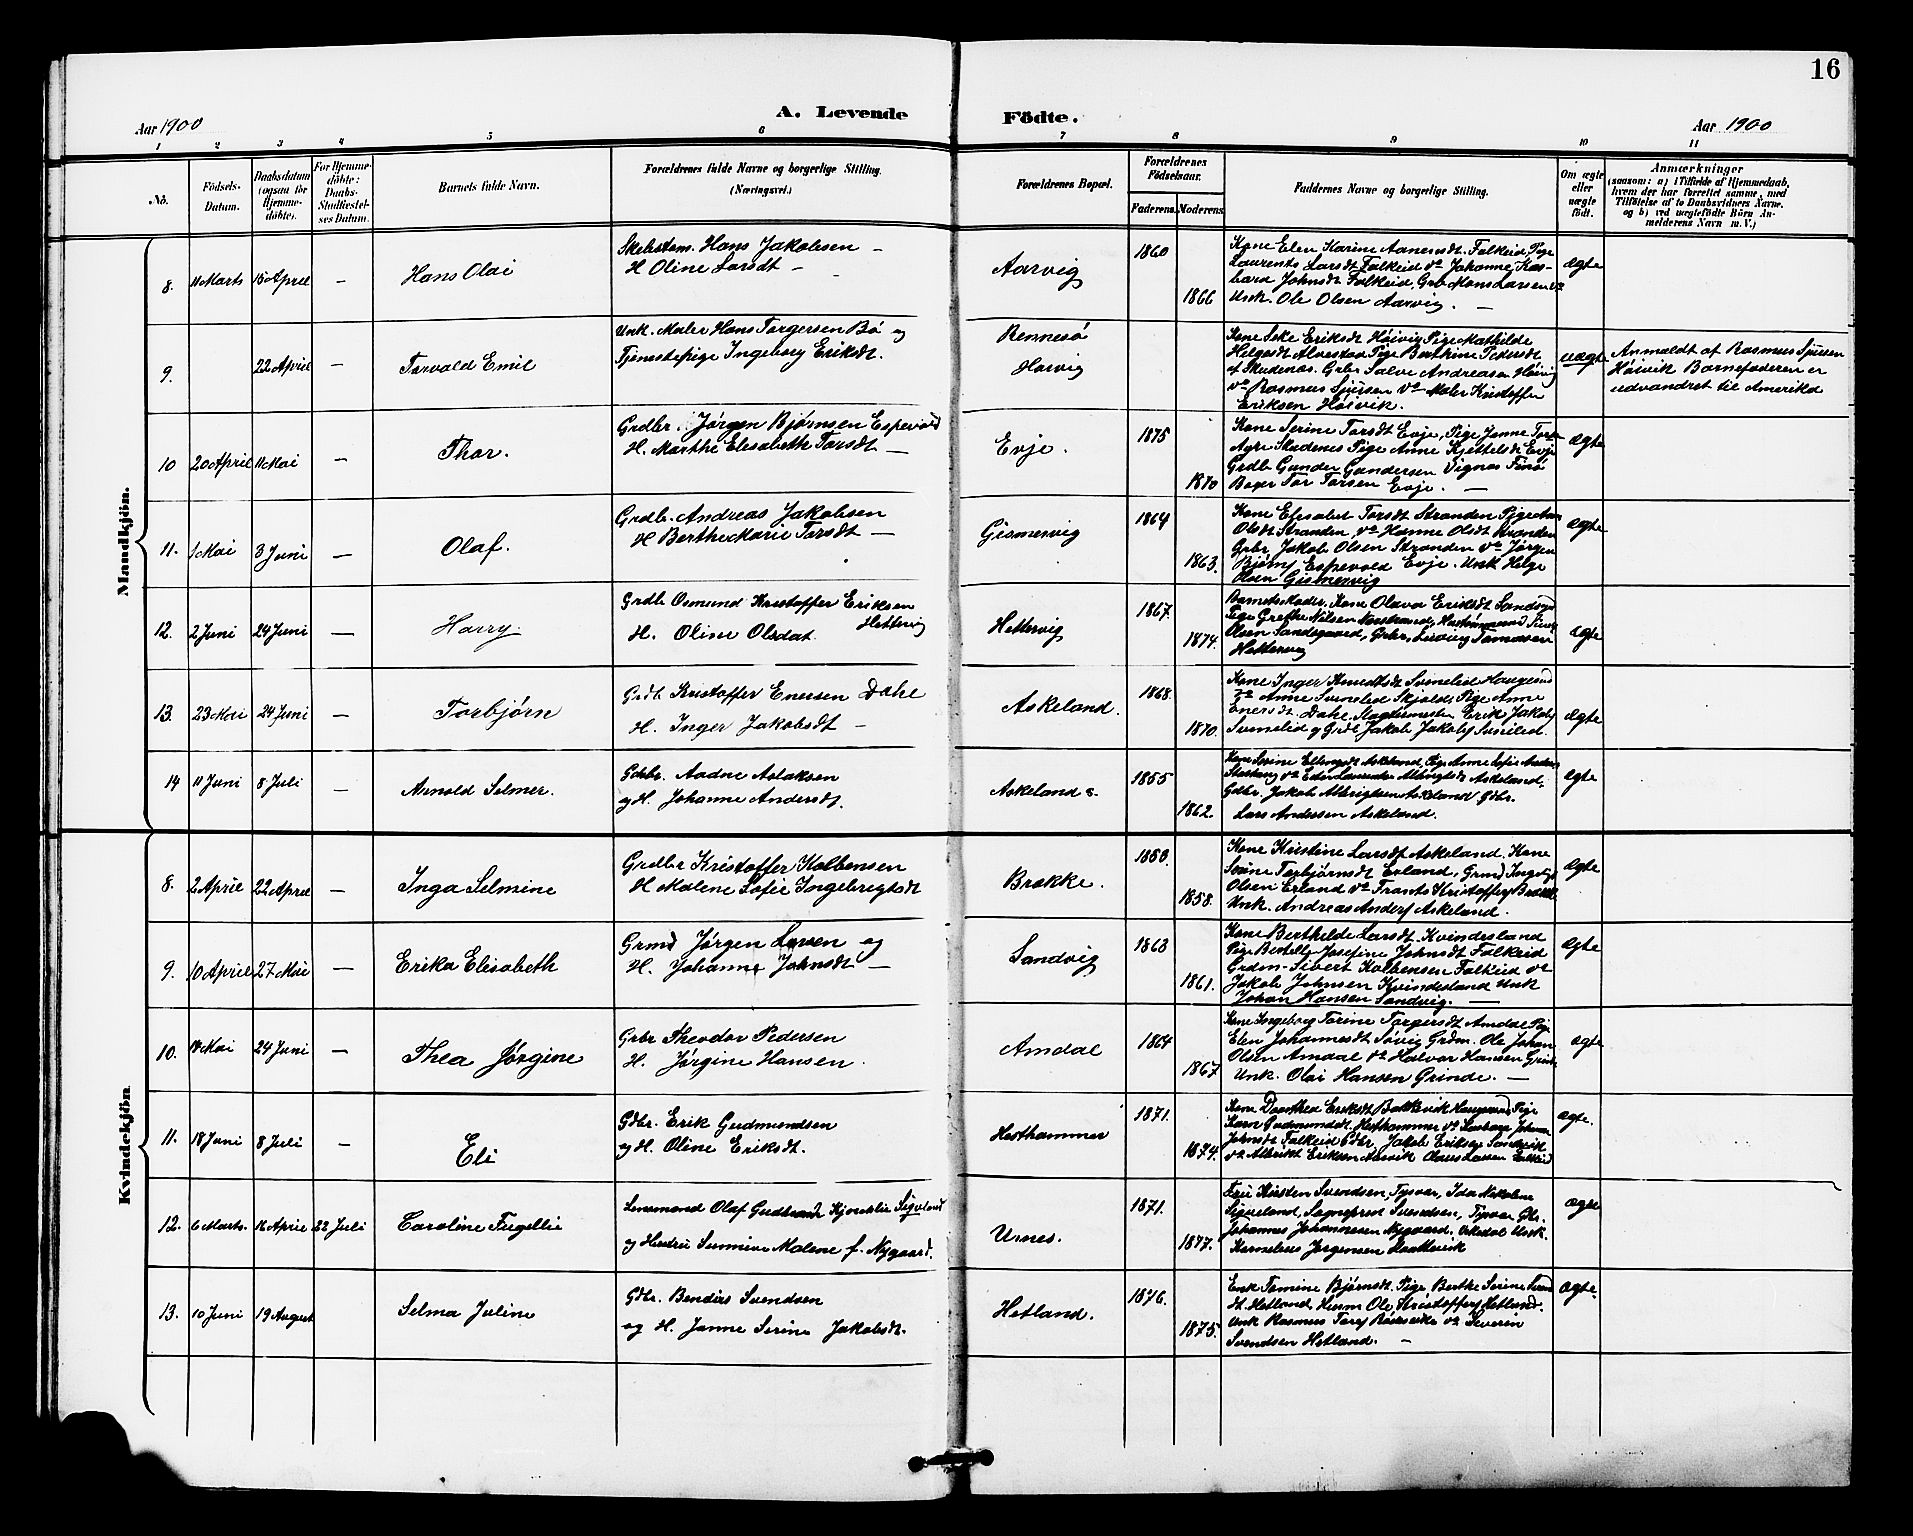 16
Aar 1900
A. Levende Födte.
Aar 1900
1 2 3 4 5 6 7 8 9 10 11
No.
Födsels-Datum.
Daabsdatum (ogsaa for Hjemmedöbte).
For Hjemmedöbte: Daabs-Stadfæstelses Datum.
Barnets fulde Navn.
Forældrenes fulde Navne og borgerlige Stilling.
(Næringsvei.)
Forældrenes Bopæl.
Forældrenes Födselsaar.
Faderens. Moderens.
Faddernes Navne og borgerlige Stilling.
Om ægte eller uægte födt.
Anmærkninger
(saasom: a) i Tilfælde af Hjemmedaab, hvem der har forrettet samme, med Tilföielse af to Daabsvidners Navne, og b) ved uægtefödte Börn Anmelderens Navn m. V.)
Mandkjön.
8. 11 Marts 15 April — Hans Olai
Hans Jakobsen —
H. Oline Larsdt —
Aarvig 1860 1866
Kone Elen Karine Aanensdt. Falkeid, Pige
Laurents Larsdt Falkeid do Johanne
Johnsdt Falkeid, Grb Mons Larsen do
Unk. Ole Olsen Aarvig. —
ægte
9. 22 April — Torvald Emil
Unk. Maler Hans Torgersen Bö og
Tjenestepige Ingeborg Eriksdt.
Rennesö
Hoivig
Eriksdt Höivig Pige Mathilde
Helgesdt Pige Berthine Pedersdt
af Skudenæs. Grbr Salve Andreasen Höivig
do Rasmus Sjursen do Maler Kristoffer
Eriksen Höivik.
uægte
Anmeldt af Rasmus Sjursen
Höivik Barnefaderen er
udvandret til Amerika
10 20 April 11 Mai — Thor.
Grdbr. Jørgen Bjørnsen Espevold
H. Marthe Elisabeth Torsdt —
Evje. 1875 1870
Kone Serine Torsdt Evje, Pige Janne
Skudenes Pige Anne Kjettelsdt Evje
Grdb Gunder Gundersen Vignæs Finö
Tor Torsen Evje. —
ægte
11. 1 Mai 3 Juni — Olaf.
Grdb. Andreas Jakobsen
H. Berthe Marie Torsdt —
Gismervig 1864 1863.
Kone Elesabet Torsdt Stranden Pige
Olsdt Stranden, do Hanne Olsdt Stranden
Grbr Jakob Olsen Stranden do Jørgen
Bjørns Espevold Evje. Unk Helge
Olsen Gismervig
ægte
12. 2 Juni 24 Juni — Harry.
Grdb Osmund Kristoffer Eriksen
Hettervig
H. Oline Olsdat.
Hettervig 1867. 1874.
Barnets Moder. Kone Olava Eriksdt
Pige Grethe Nilsen
Olsen Sandsgaard, Grbr. Ludvig Tomassen
Hettervig
ægte
13. 23 Mai 24 Juni — Torbjørn
Grdb Kristoffer Enersen Dahe
H. Inger Jakobsdt —
Askeland. 1868. 1870.
Kone Inger Knudsdt Svineled Haugesund
do Anne Svineled Skjold, Pige Anne
Enersdt Dahe. Slagtermester Erik Jakobs
Svineled og Grdb Jakob Jakobs Svineled.
ægte
14 11 Juni 8 Juli — Arnold Selmer.
Gdbr. Aadne Aslaksen
og H. Johanne Andersdt.
Askeland 1855 1862.
Kone Serine Askeland, Pige Anne Sofie
Askeland,
Gdbr. Jakob Albrigtsen Askeland Gdbr.
Lars Andersen Askeland.
ægte
Kvindekjön
8. 2 April 22 April — Inga Selmine
Grdbr Kristoffer Kolbensen
H Malene Sofie Ingebrigtsdt
Brokke. 1850. 1858.
Kone Kirstine Larsdt Askeland, Kone
Torbjørnsdt Erland, Grmd
Olsen Erland do Frants Kristoffers
Unk. Andreas Anders Askeland.
ægte
9. 10 April 27 Mai — Erika Elisabeth
Grmd Jørgen Larsen og
H. Johanne Johnsdt —
Sandvig 1863 1861.
Kone Berthilde Larsdt. Kvindesland
Pige Josefine Johnsdt Falkeid
Grdm. Sivert Kolbensen Falkeid do
Jakob Johnsen Kvindesland Unk
Johan Hansen Sandvig. —
ægte
10. Mai 24 Juni — Thea Jørgine
Grbr Theodor Pedersen
H. Jørgine Hansen.
Amdal 1864 1867
Kone Ingeborg Torine Torgersdt Amdal Pige
Elen Johannesdt Grdm. Ole Johan
Olsen Amdal do Halvor Hansen Grinde
Unk. Olai Hansen Grinde. —
ægte
11. 18 Juni 8 Juli — Eli
Gdbr. Erik Gudmundsen
og H. Oline Eriksdt.
Hesthammer 1871. 1874.
Kone Dorthea Eriksdt Bakkevik Haugesund, Pige
Karn Gudmundsdt. Hesthammer do
Johnsdt Falkeid Gdbr. Jakob Eriksen Sandvik
do Albrikt Eriksen
ægte.
12. 6 Marts. 16 April 22 Juli Caroline Fugellie
Lensmand Olaf Gudbrand Kjonelie Sigveland
og Hustru Sunnive Malene f. Nygaard.
Urnes. 1871. 1877.
Fru Kirsten Svendsen, Tysvær, Ida Nikoline
Sigveland, Sogneprest Svendsen, Tysvær Gbr.
Johannes Johannesen Nygaard. Unk.
Kornelius Jørgensen
ægte
13. 10 Juni 19 August Selma Juline
Gdbr. Svendsen
og H. Janne Serine Jakobsdt.
Hetland. 1876. 1875.
Enk Tomine Bjørnsdt. Pige Berthe Serine
Hetland, Ole Kristoffers Hetland.
Unk Rasmus Tors do Severin
Svendsen Hetland. —
ægte.